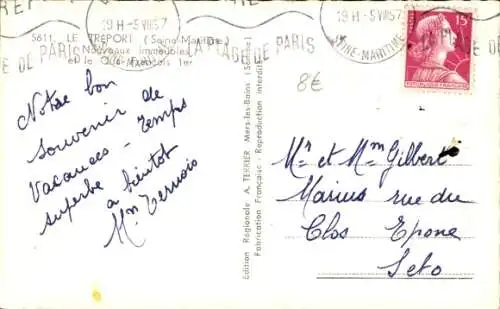 5611. LE TRÉPORT (Seine-Maritime)
Nouveaux Immeubles
et le Quai François 1er
PLAGE DE PARIS
19 H - 5 VIII 57
19 H - 5 VIII 57
SEINE-MARITIME
15F
RÉPUBLIQUE FRANÇAISE
8€
Notre bon
souvenir de
Vacances - temps
superbe
a bientôt
Mr et Mm Gilbert
Marius rue du
Clos Epone
Seto
Edition Régionale A. TERRIER, Mers-les-Bains (Somme)
Fabrication Française - Reproduction interdite